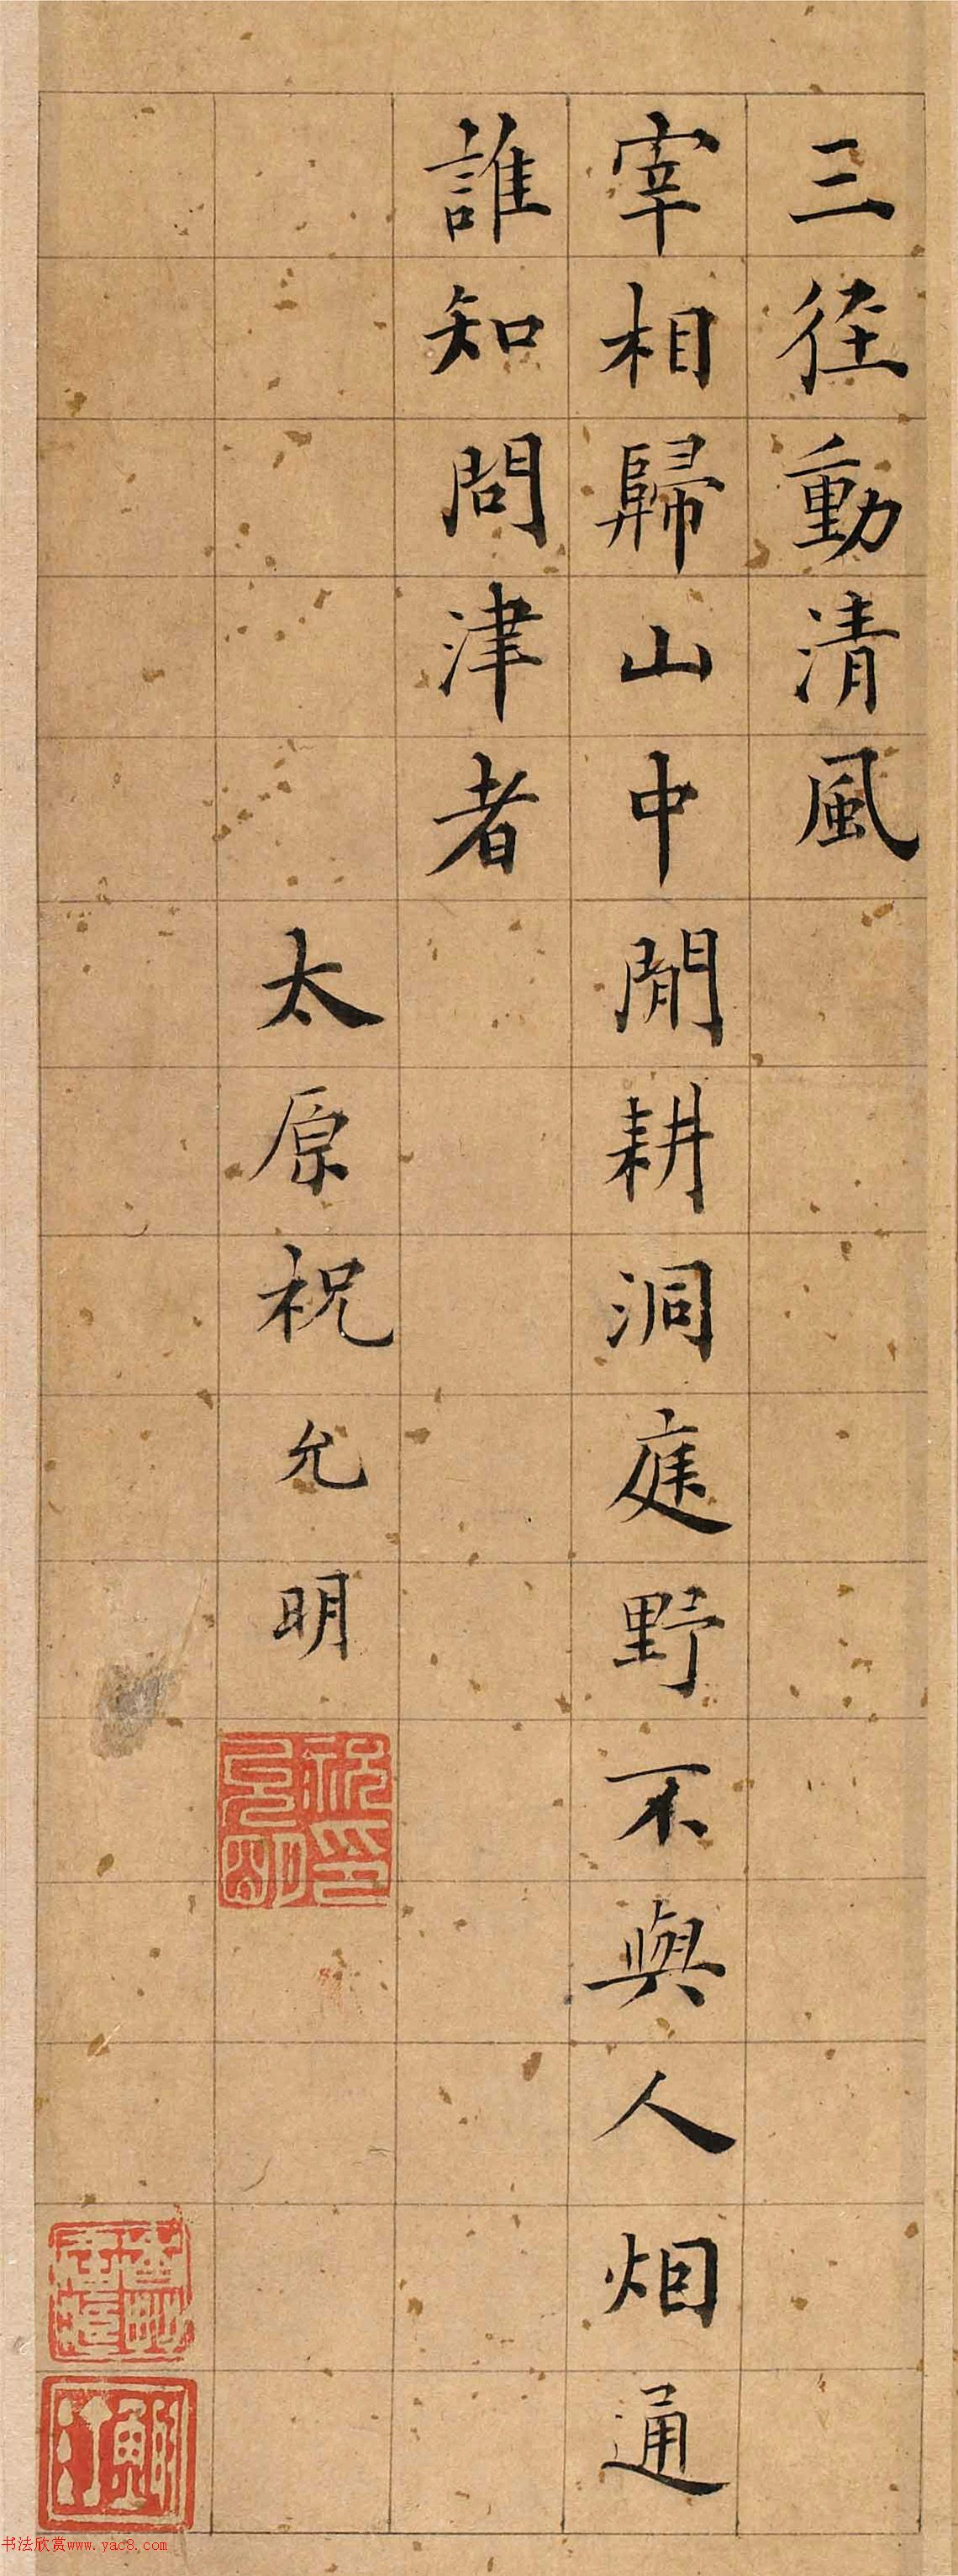 三径動清風
宰相歸山中閒耕洞庭野不與人烟通
誰知問津者
太原祝允明
祝允明印
书法欣赏www.yac8.com